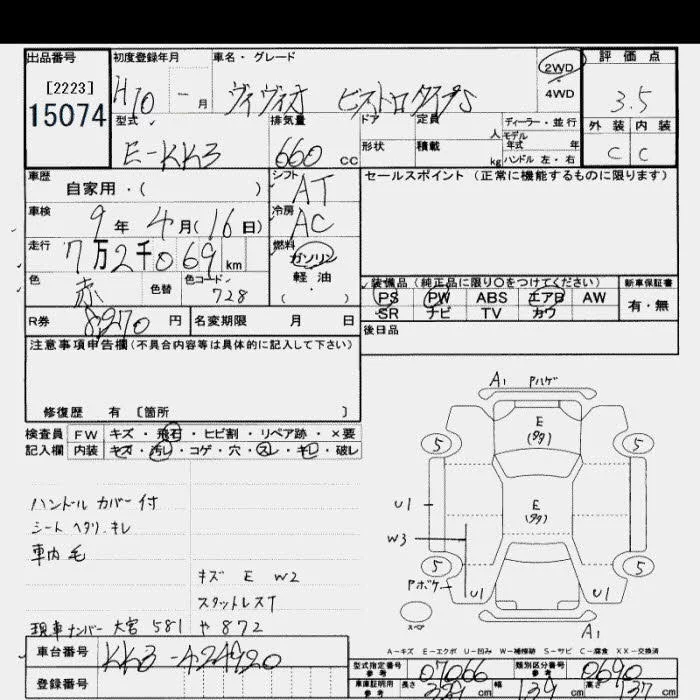 出品番号 初度登録年月 車名・グレード 2WD 評価点
[2223] H10 - 月 ヴィヴィオ ビストロ タイプS 4WD 3.5
15074 型式 排気量 ドア 定員 人 ディーラー・並行 外装 内装
E-KK3 660 CC 形状 積載 kg モデル年式 年 ハンドル 左・右 C C
車歴 自家用・( ) シフト AT セールスポイント(正常に機能するものに限ります)
車検 9年 4月(16日) 冷房 AC
走行 7万2千069 km 燃料 ガソリン
色 赤 色替 色コード 728 軽油 ( ) 装備品(純正品に限り○をつけてください) 新車保証書
PS PW ABS エアB AW 有・無
SR ナビ TV カワ
R券 8,970 円 名変期限 月 日 後日品
注意事項申告欄(不具合内容等は具体的に記入して下さい)
修復歴 有 [箇所 ]
検査員 FW キズ・飛石・ヒビ割・リペア跡・×要
記入欄 内装 キズ・汚レ・コゲ・穴・スレ・キレ・破レ
A1 Pハゲ
E
(タタ)
5 5
E
(タタ)
U1
W3
5 5
Pボケ
U1 U1
スペア
A1
ハンドル カバー付
シート ヘタリ.キレ
車内 毛
キズ E W2
スタットレスT
現車ナンバー 大宮 581 や 872
A-キズ E-エクボ U-凹み W-補修跡 S-サビ C-腐食 XX-交換済
車台番号 KK3-424920
型式指定番号 参考 07066 類別区分番号 参考 0640
登録番号
車庫証明用 参考 長さ cm 幅 139 cm 高さ 137 cm